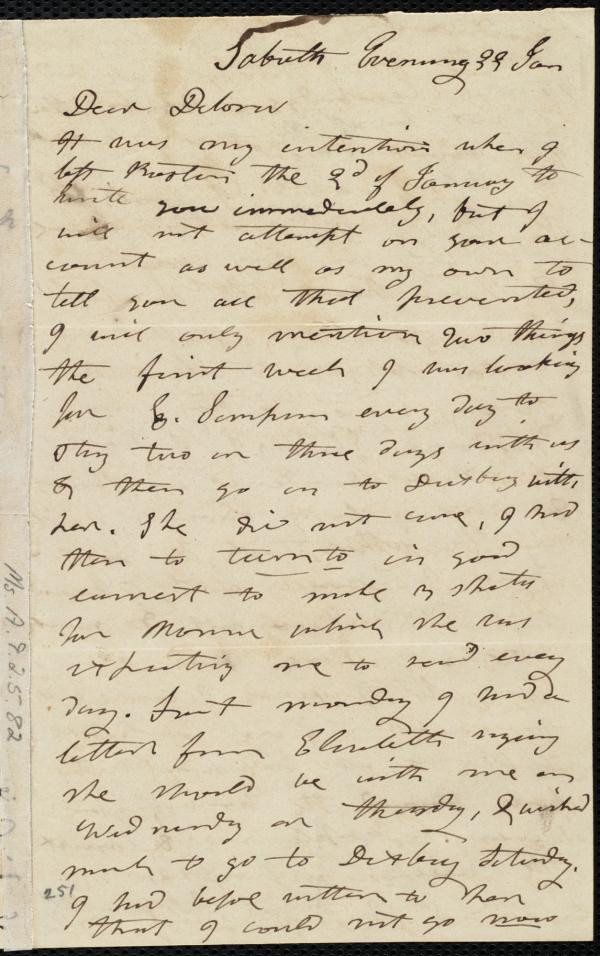 Sabath Evening 22 Jan
Dear Debora
It was my intention when I
left Boston the 2d of January to
write you immediately, but I
will not attempt on your ac-
count as well as my own to
tell you all that prevented,
I will only mention two things
the first week I was looking
for E. Sampson every day to
stay two or three days with us
& then go on to Duxbury with
her. She did not come, I had
then to turn to in good
earnest to make
for which she was
expecting me to send every
day. Last monday I had a
letter from Elizabeth saying
she should be with me on
Wednesday or thursday, & wished
much to go to Duxbury Saturday.
I had before written to her
that I could not go now
251
Ms A.9.2.5.82